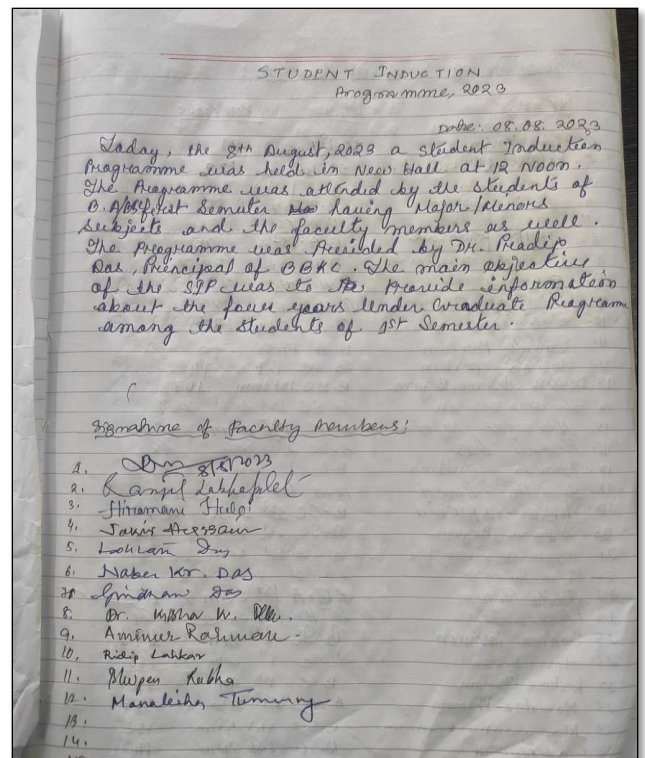 STUDENT INDUCTION
Programme, 2023
Date: 08.08.2023
Today, the 8th August, 2023 a Student Induction
Programme was held in New Hall at 12 Noon.
The Programme was attended by the students of
B.A/BSc first Semester having Major/Minors
Subjects and the faculty members as well.
The Programme was Presided by Dr. Pradip
Das, Principal of BBKC. The main objective
of the SIP was to provide information
about the four years Under Graduate Programme
among the students of 1st Semester.
Signature of Faculty Members:
1. 8/8/2023
2.
3. Hiramani
4. Hussain
5. Das
6. Kr. Das
7. Das
8. Dr.
9. Aminur Rahman
10. Ridip Lahkar
11. Rabha
12.
13.
14.